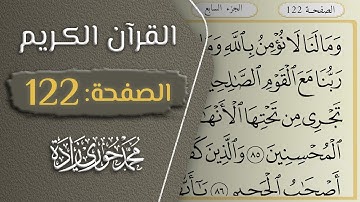 القرآن الكريم
الصفحة: 122
محمد حوري زادة
الصفحة 122
الجزء السابع
وَمَالَنَا لَا نُؤْمِنُ بِاللَّهِ وَمَا
رَبُّنَا مَعَ الْقَوْمِ الصَّالِحِينَ
تَجْرِي مِن تَحْتِهَا الْأَنْهَا
الْمُحْسِنِينَ ٨٥ وَالَّذِينَ كَفَ
أَصْحَابُ الْجَحِيمِ ٨٦ يَا أَيُّ